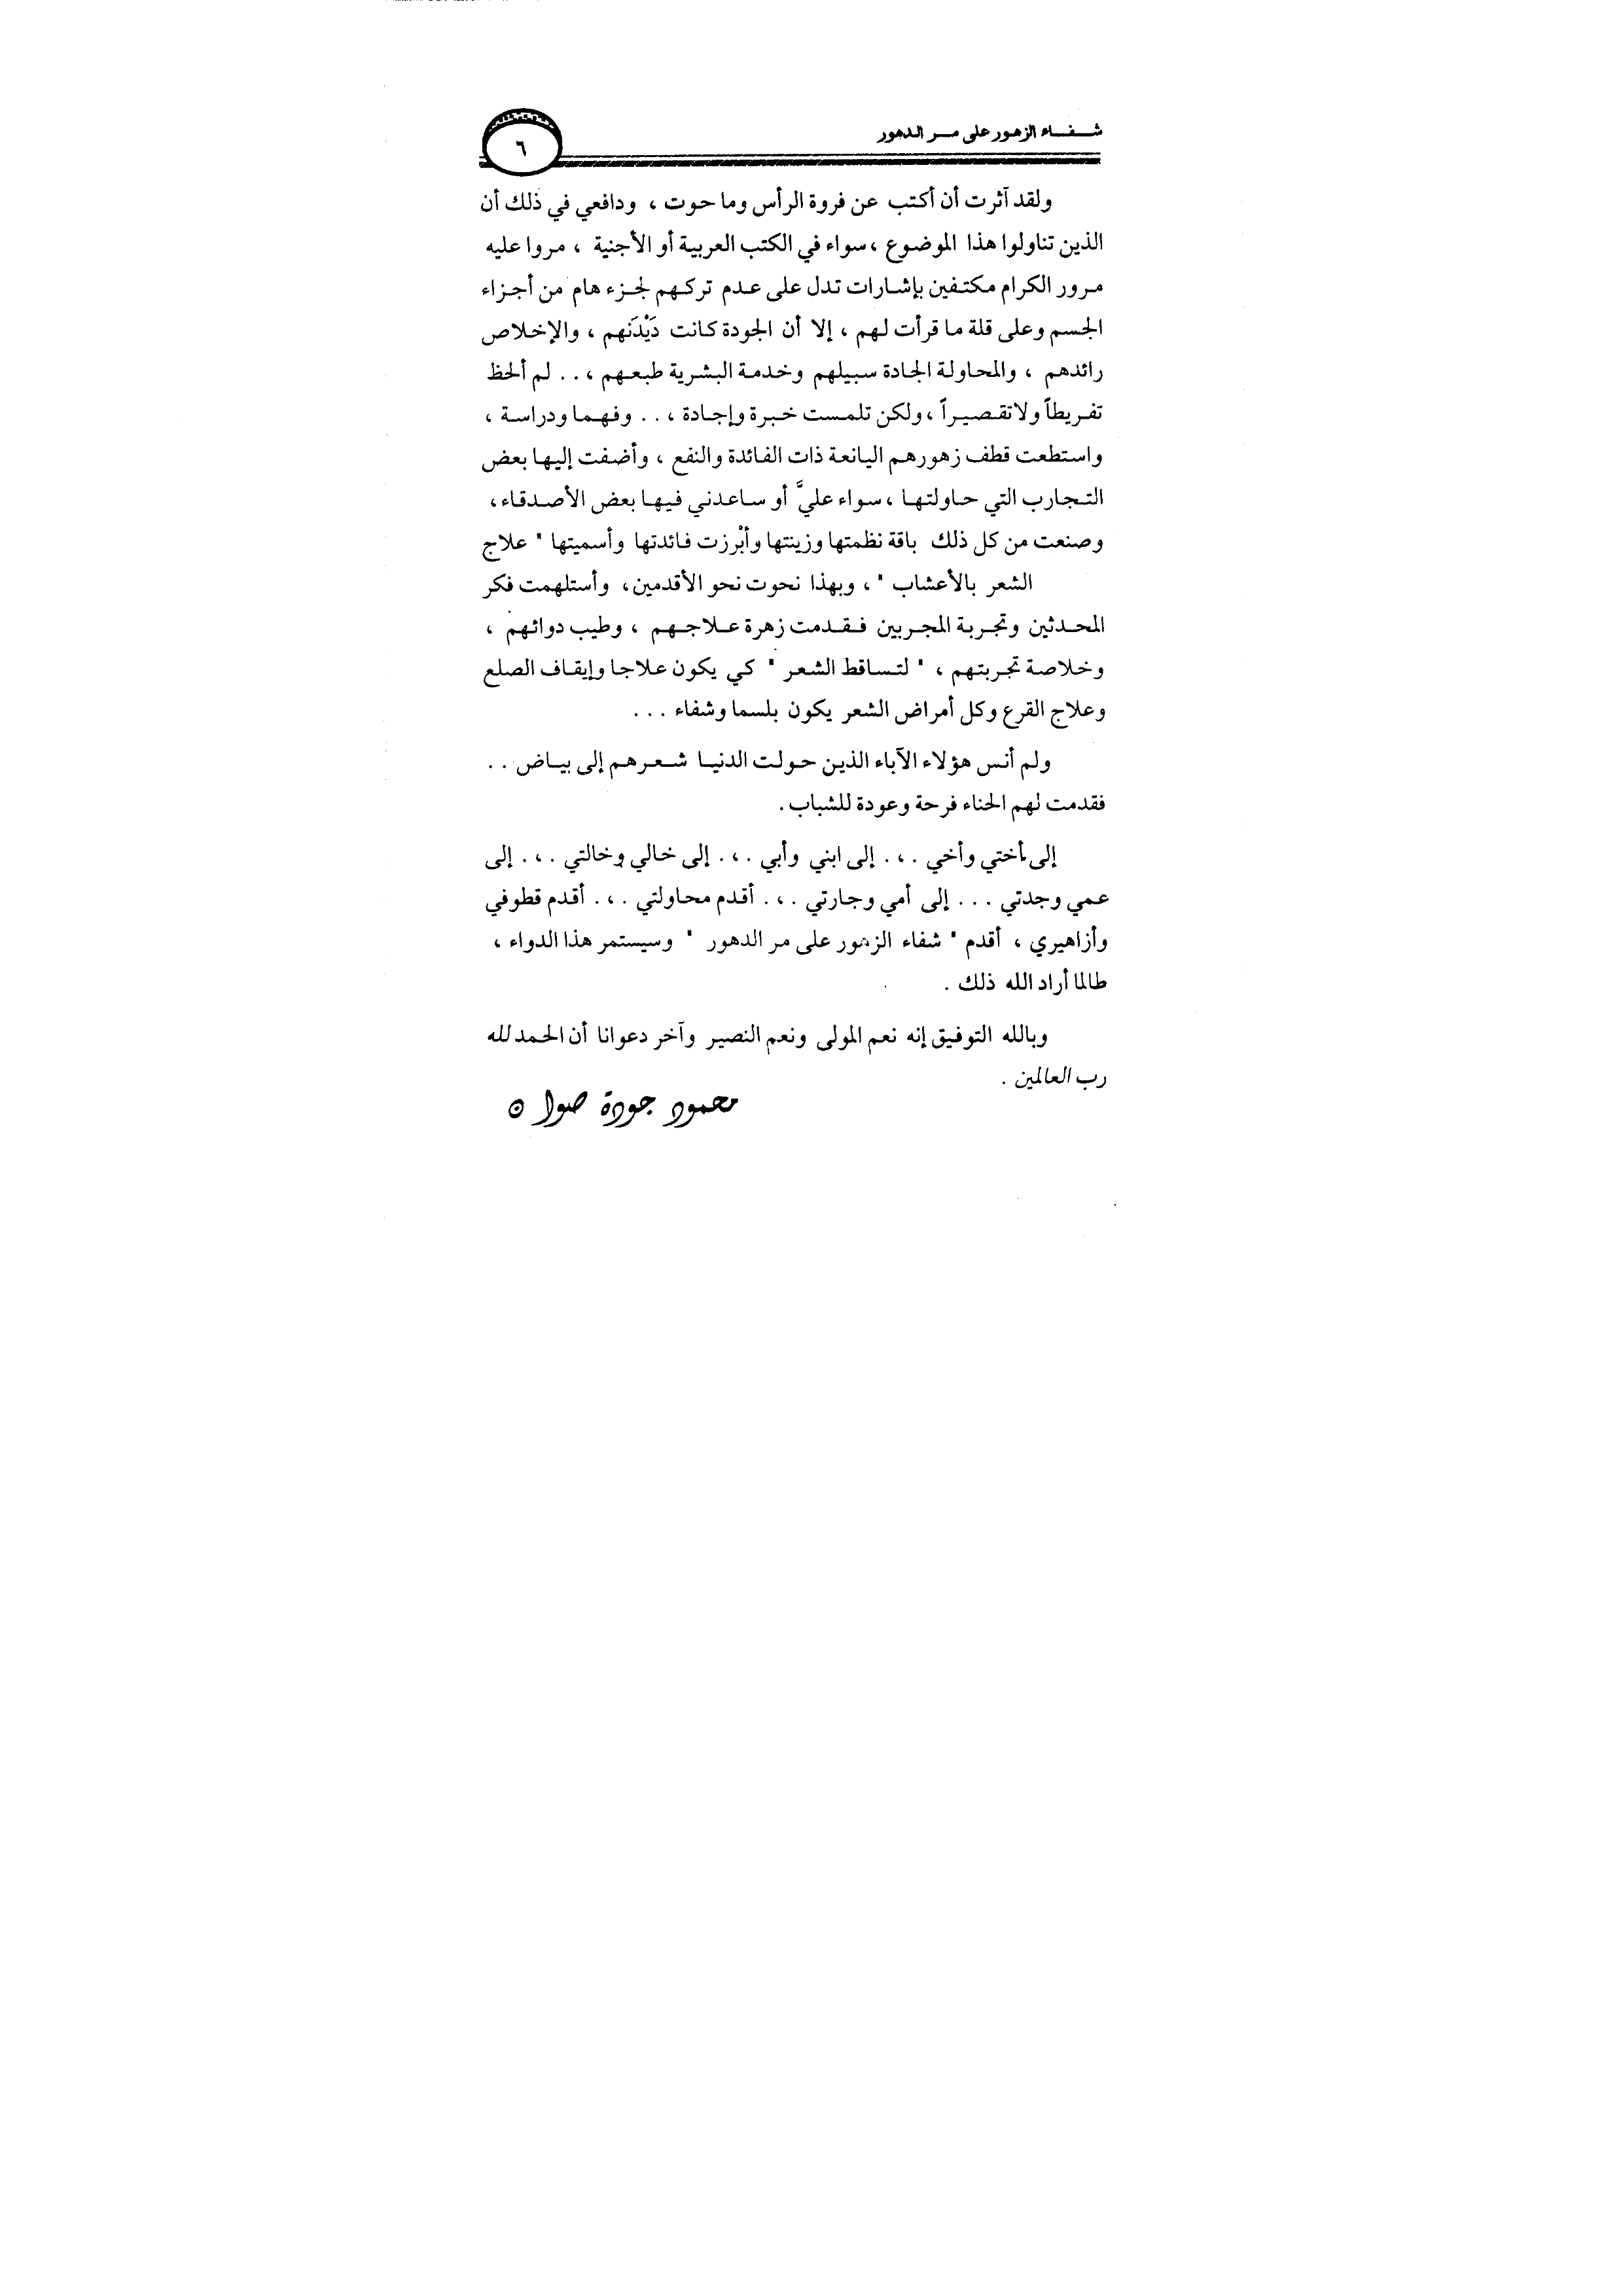 شفاء الزهور على مر الدهور
٦
ولقد آثرت أن أكتب عن فروة الرأس وما حوت ، ودافعي في ذلك أن
الذين تناولوا هذا الموضوع ، سواء في الكتب العربية أو الأجنبية ، مروا عليه
مرور الكرام مكتفين بإشارات تدل على عدم تركهم لجزء هام من أجزاء
الجسم وعلى قلة ما قرأت لهم ، إلا أن الجودة كانت دَيْدَنهم ، والإخلاص
رائدهم ، والمحاولة الجادة سبيلهم وخدمة البشرية طبعهم ، . . لم ألحظ
تفريطاً ولا تقصيراً ، ولكن تلمست خبرة وإجادة ، . . وفهما ودراسة ،
واستطعت قطف زهورهم اليانعة ذات الفائدة والنفع ، وأضفت إليها بعض
التجارب التي حاولتها ، سواء عليَّ أو ساعدني فيها بعض الأصدقاء ،
وصنعت من كل ذلك باقة نظمتها وزينتها وأبْرزت فائدتها وأسميتها " علاج
الشعر بالأعشاب " ، وبهذا نحوت نحو الأقدمين ، وأستلهمت فكر
المحدثين وتجربة المجربين فقدمت زهرة علاجهم ، وطيب دوائهم ،
وخلاصة تجربتهم ، " لتساقط الشعر " كي يكون علاجا وإيقاف الصلع
وعلاج القرع وكل أمراض الشعر يكون بلسما وشفاء . . .
ولم أنس هؤلاء الآباء الذين حولت الدنيا شعرهم إلى بياض . .
فقدمت لهم الحناء فرحة وعودة للشباب .
إلى أختي وأخي . ، . إلى ابني وأبي . ، . إلى خالي وخالتي . ، . إلى
عمي وجدتي . . . إلى أمي وجارتي . ، . أقدم محاولتي . ، . أقدم قطوفي
وأزاهيري ، أقدم " شفاء الزهور على مر الدهور " وسيستمر هذا الدواء ،
طالما أراد الله ذلك .
وبالله التوفيق إنه نعم المولى ونعم النصير وآخر دعوانا أن الحمد لله
رب العالمين .
محمود جودة صوان